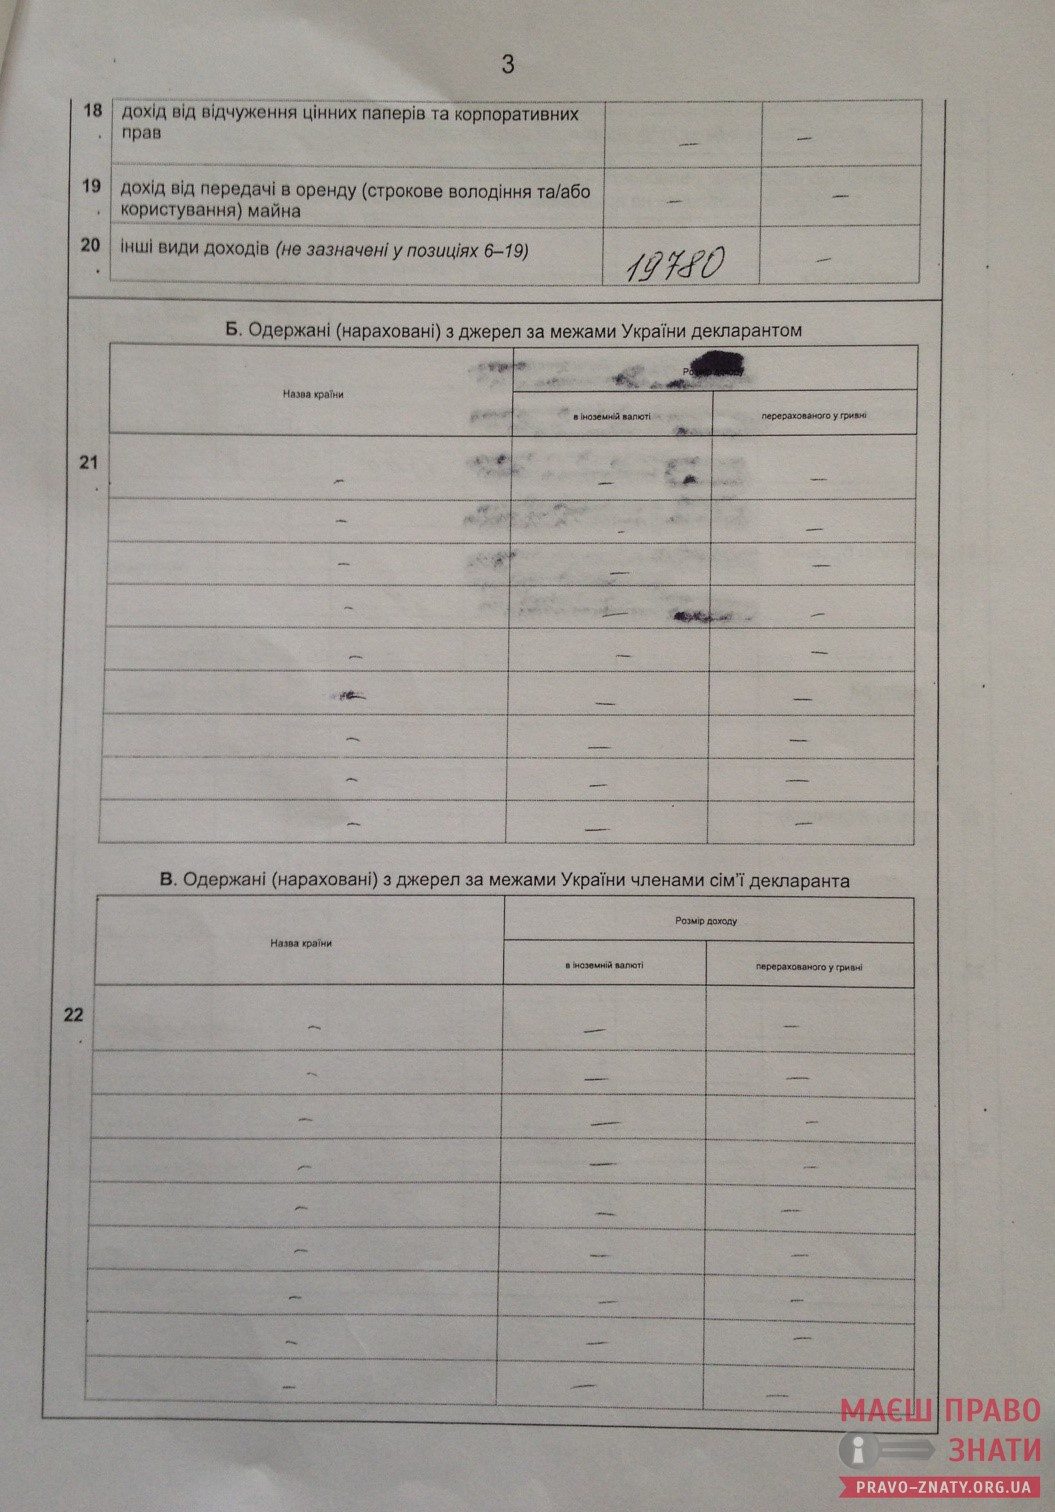 3
18 дохід від відчуження цінних паперів та корпоративних — —
. прав
19 дохід від передачі в оренду (строкове володіння та/або — —
. користування) майна
20 інші види доходів (не зазначені у позиціях 6–19) 19780 —
.
Б. Одержані (нараховані) з джерел за межами України декларантом
Розмір доходу
Назва країни
в іноземній валюті перерахованого у гривні
21
. — — —
— — —
— — —
— — —
— — —
— — —
— — —
— — —
— — —
В. Одержані (нараховані) з джерел за межами України членами сім'ї декларанта
Розмір доходу
Назва країни
в іноземній валюті перерахованого у гривні
22
. — — —
— — —
— — —
— — —
— — —
— — —
— — —
— — —
— — —
МАЄШ ПРАВО
ЗНАТИ
PRAVO-ZNATY.ORG.UA